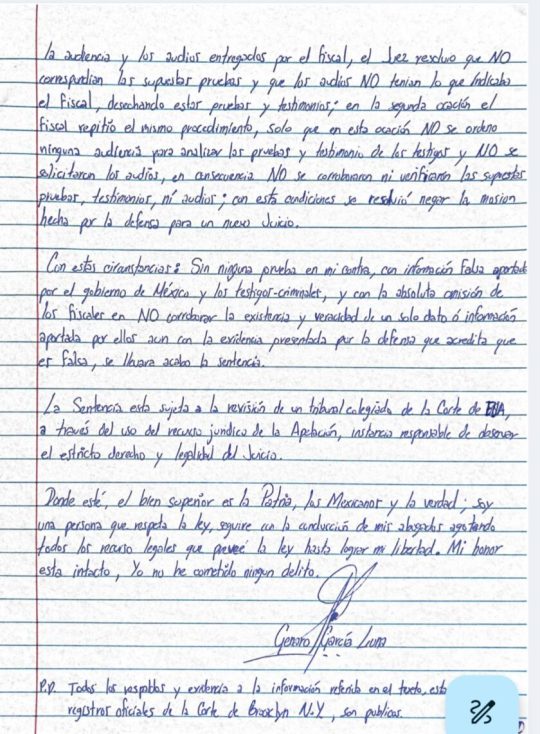 la audiencia y los audios entregados por el fiscal, el Juez resolvio que NO
correspondian las supuestas pruebas y que los audios NO tenian lo que indicaba
el Fiscal, desechando estas pruebas y testimonios; en la segunda ocasión el
Fiscal repitio el mismo procedimiento, solo que en esta ocasión NO se ordeno
ninguna audiencia para analizar las pruebas y testimonio de los testigos y NO se
solicitaron los audios, en consecuencia NO se corroboraron ni verificaron las supuestas
pruebas, testimonios, ni audios; con estas condiciones se resolvió negar la mosion
hecha por la defensa para un nuevo Juicio.
Con estas circunstancias: Sin ninguna prueba en mi contra, con información Falsa aportada
por el gobierno de México y los testigos-criminales, y con la absoluta omisión de
los Fiscales en NO corroborar la existencia y veracidad de un solo dato ó información
aportada por ellos aun con la evidencia presentada por la defensa que acredita que
es Falsa, se llevara acabo la sentencia.
La Sentencia esta sujeta a la revisión de un tribunal colegiado de la Corte de EUA,
a través del uso del recurso juridico de la Apelación, instancia responsable de
el estricto derecho y legalidad del Juicio.
Donde esté, el bien superior es la Patria, los Mexicanos y la verdad; soy
una persona que respeta la ley, seguire con la conducción de mis abogados agotando
todos los recurso legales que preveé la ley hasta lograr mi libertad. Mi honor
esta intacto, Yo no he cometido ningun delito.
Genaro García Luna
P.D. Todos los respaldos y evidencia a la información referida en el texto, esta
registros oficiales de la Corte de Brooklyn N.Y., son publicos.
2/3